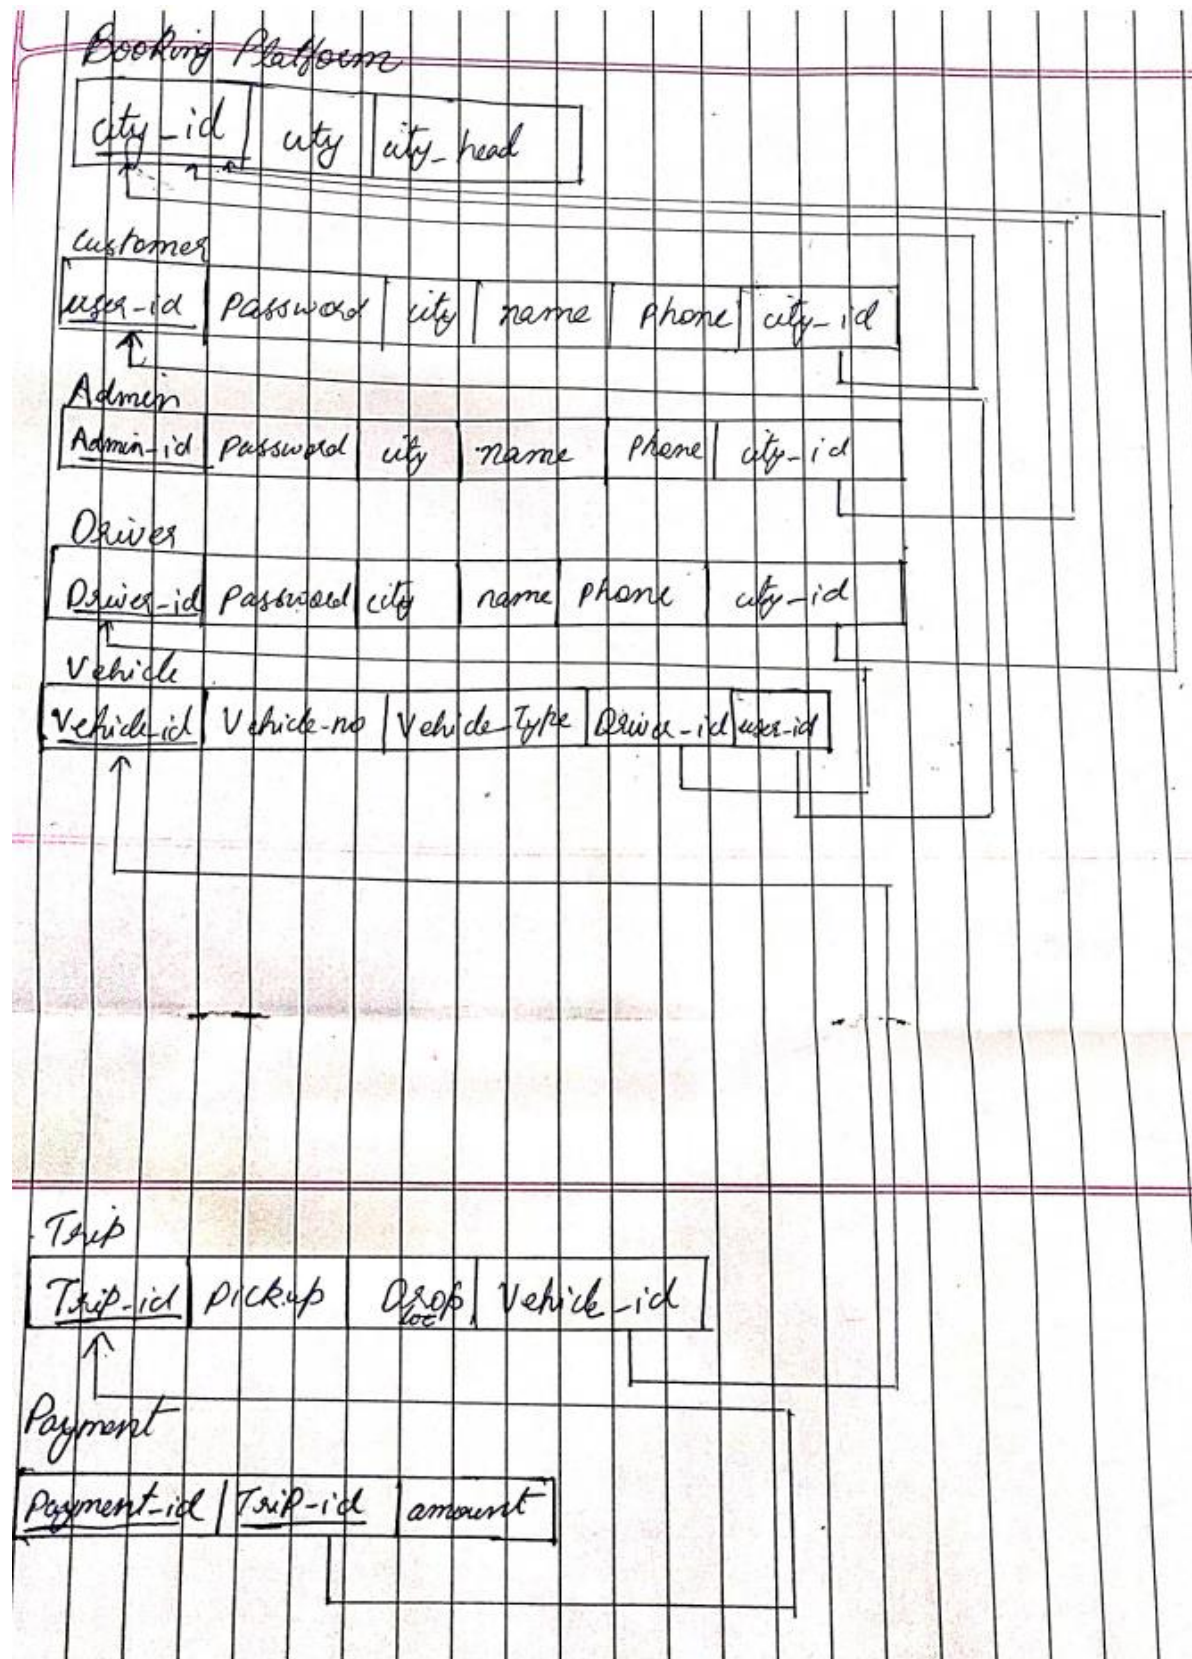 Booking Platform
city_id city city_head
customer
user-id Password city name Phone city-id
Admin
Admin-id Password city name Phone city-id
Driver
Driver-id Password city name Phone city-id
Vehicle
Vehicle-id Vehicle-no Vehicle-Type Driver-id user-id
Trip
Trip-id Pickup Drop loc Vehicle_id
Payment
Payment-id Trip-id amount